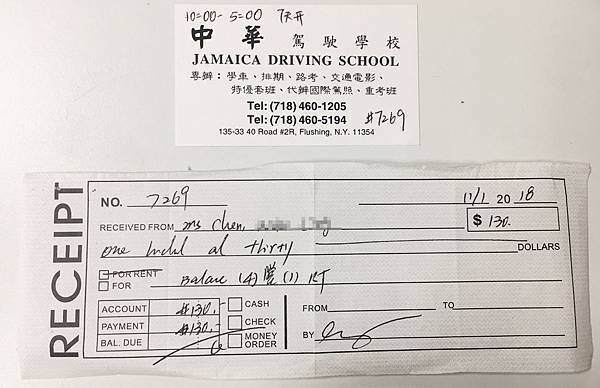 10=00-5=00 7天开
中華 駕駛學校
JAMAICA DRIVING SCHOOL
專辦：學車、排期、路考、交通電影、
特優套班、代辦國際駕照、重考班
Tel: (718) 460-1205
Tel: (718) 460-5194 #7269
135-33 40 Road #2R, Flushing, N.Y. 11354
RECEIPT
NO. 7269 11/1 2018
RECEIVED FROM ms chen, $ 130.
one thirty DOLLARS
FOR RENT
FOR Balance (4) (1) RT
ACCOUNT #130.- CASH FROM TO
PAYMENT #130.- CHECK BY
BAL. DUE 0 MONEY ORDER